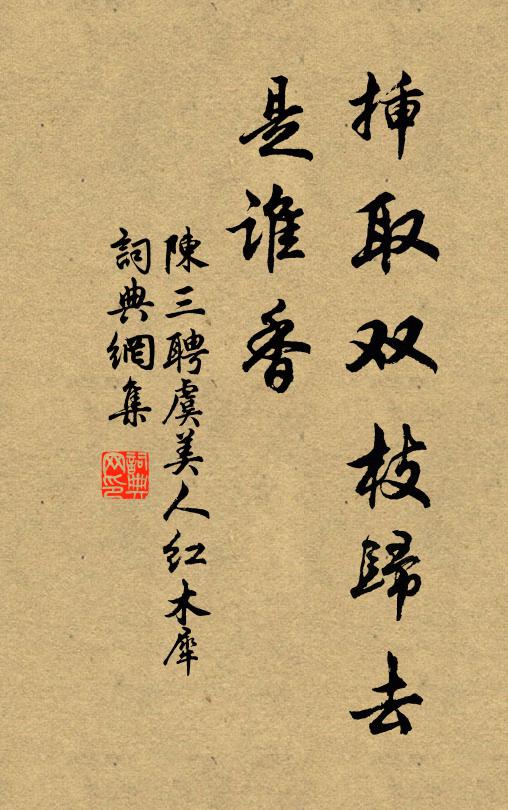 挿取双枝歸去
是谁香
陳三聘虞美人红木犀
詞典網集
詞典网印